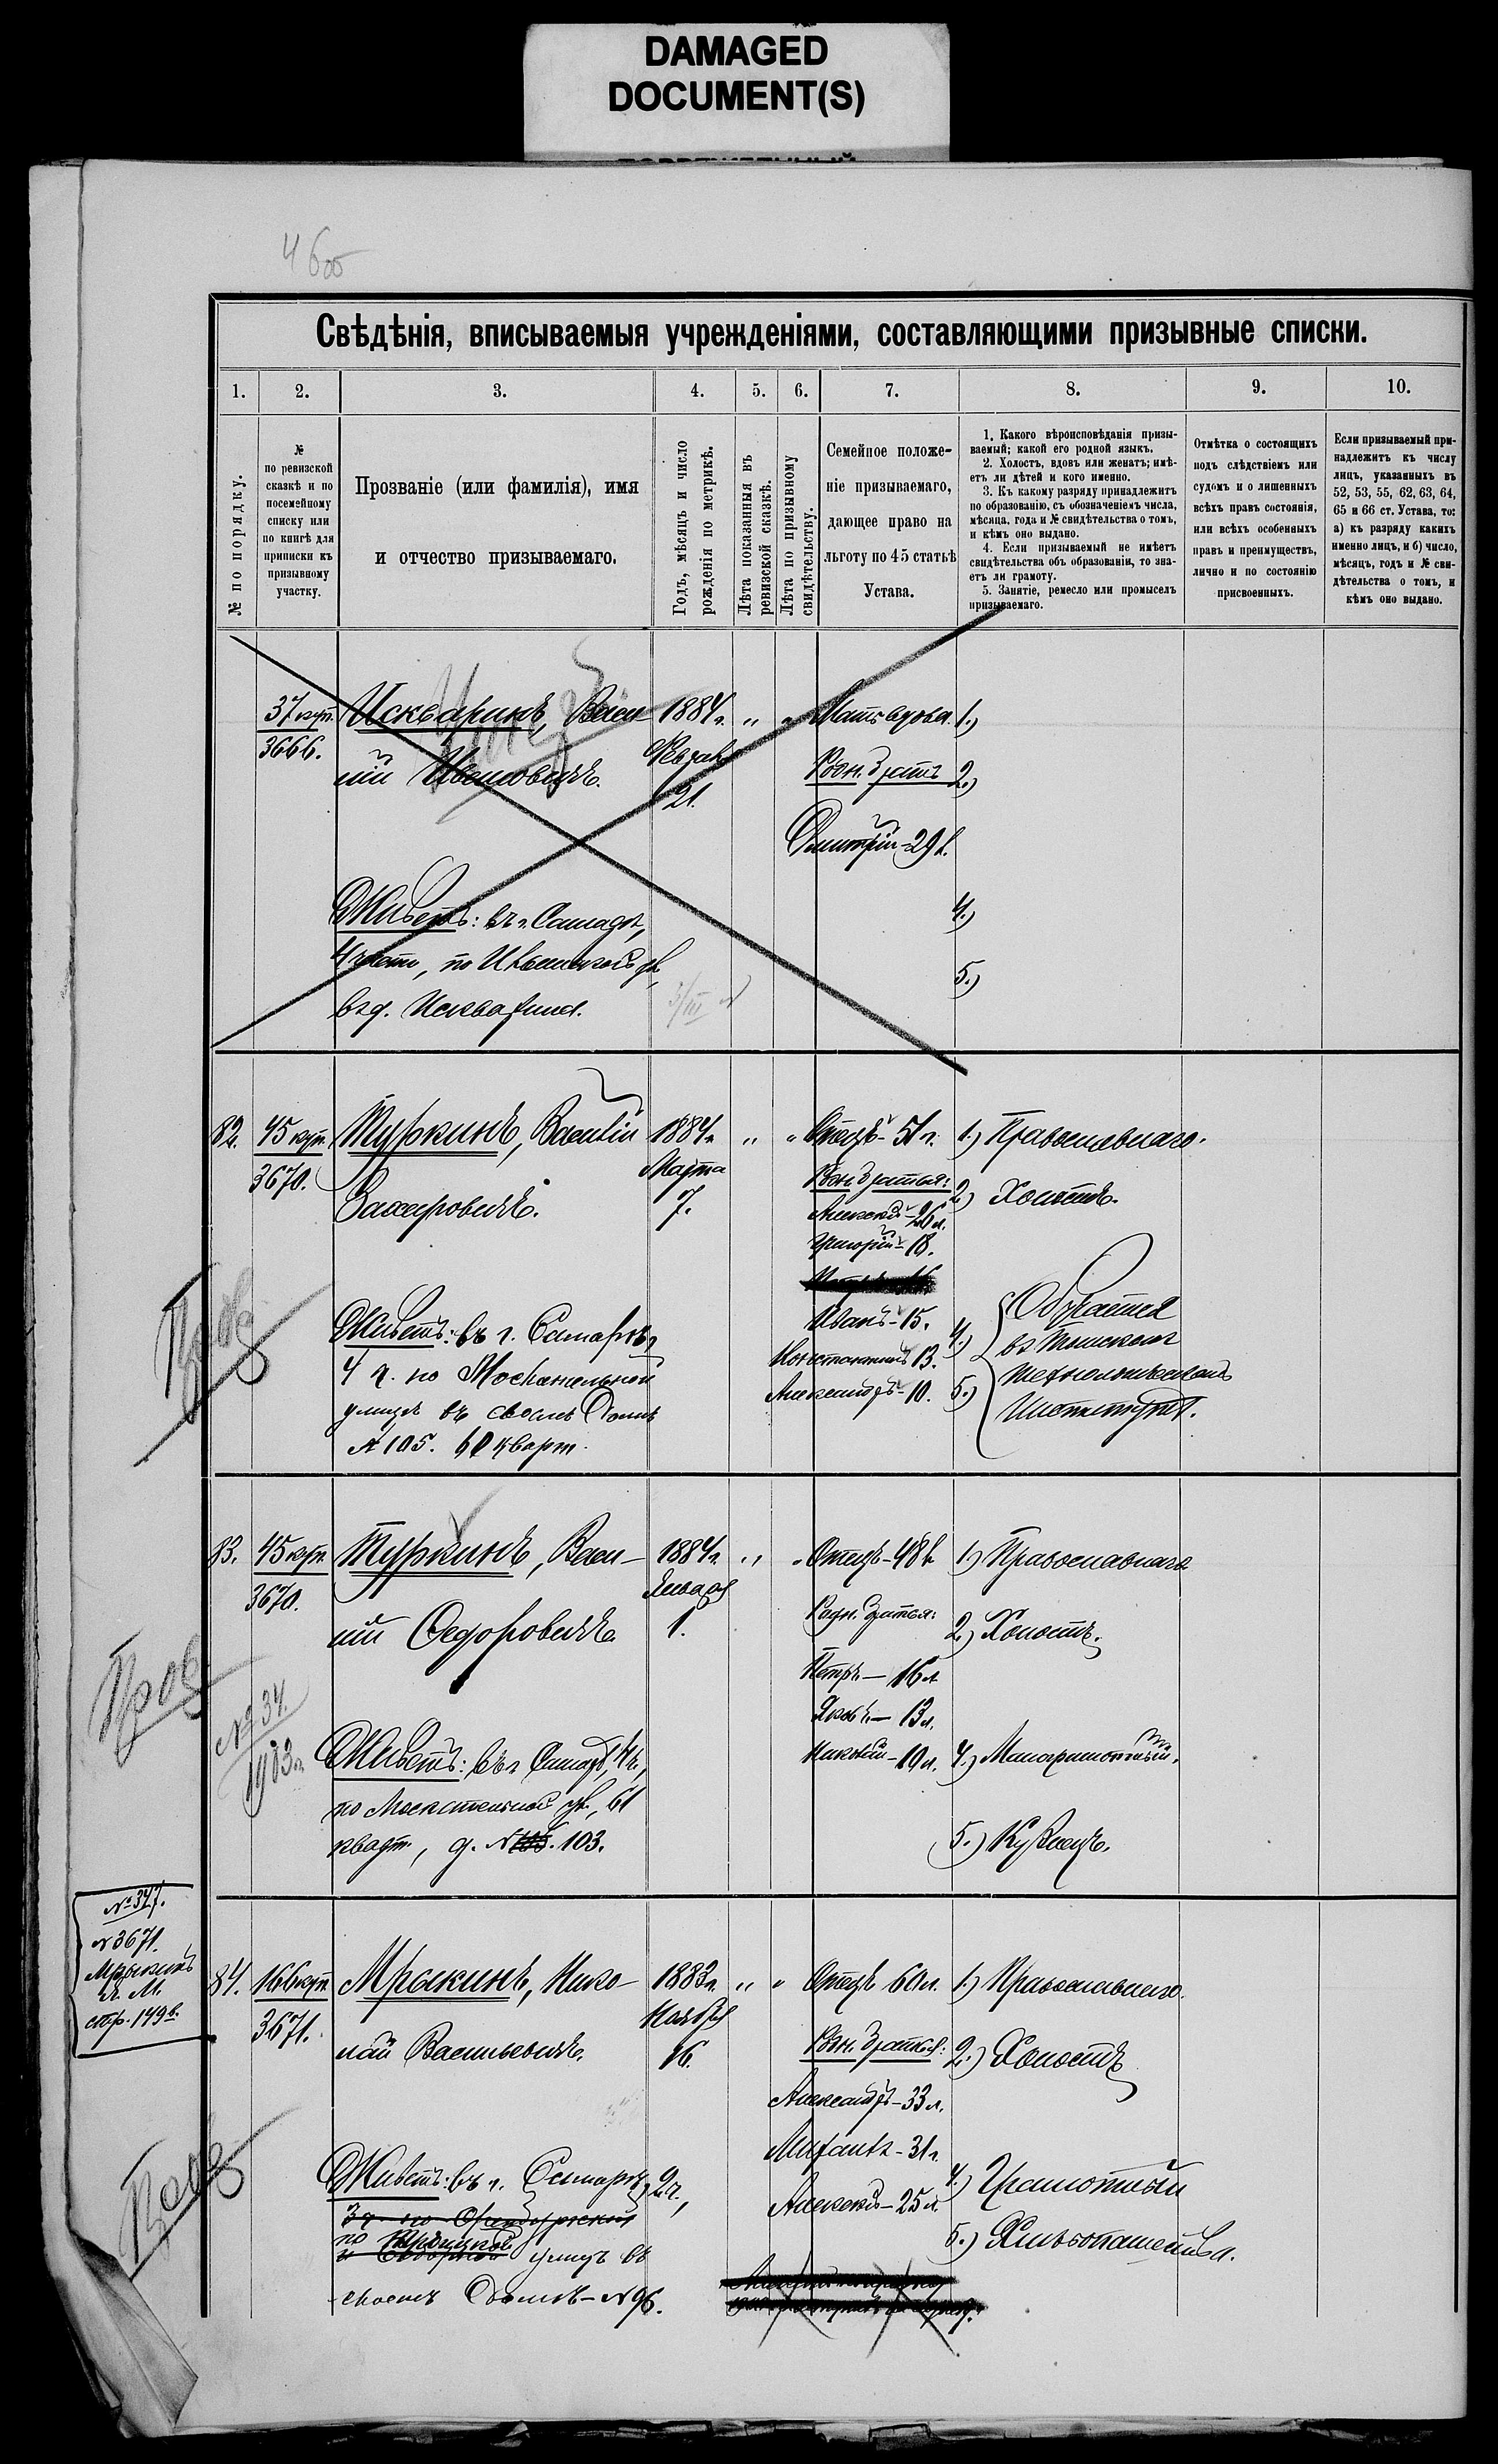 DAMAGED
DOCUMENT(S)
Свѣдѣнія, вписываемыя учрежденіями, составляющими призывные списки.
1.
2.
3.
4.
5.
6.
7.
8.
9.
10.
№ по порядку.
№
по ревизской
сказкѣ и по
посемейному
списку или
по книгѣ для
приписки къ
призывному
участку.
Прозваніе (или фамилія), имя
и отчество призываемаго.
Годъ, мѣсяцъ и число
рожденія по метрикѣ.
Лѣта показанныя въ
ревизской сказкѣ.
Лѣта по призывному
свидѣтельству.
Семейное положе-
ніе призываемаго,
дающее право на
льготу по 45 статьѣ
Устава.
1. Какого вѣроисповѣданія призы-
ваемый; какой его родной языкъ.
2. Холостъ, вдовъ или женатъ; имѣ-
етъ ли дѣтей и кого именно.
3. Къ какому разряду принадлежитъ
по образованію, съ обозначеніемъ числа,
мѣсяца, года и № свидѣтельства о томъ,
и кѣмъ оно выдано.
4. Если призываемый не имѣетъ
свидѣтельства объ образованіи, то зна-
етъ ли грамоту.
5. Занятіе, ремесло или промыселъ
призываемаго.
Отмѣтка о состоящихъ
подъ слѣдствіемъ или
судомъ и о лишенныхъ
всѣхъ правъ состоянія,
или всѣхъ особенныхъ
правъ и преимуществъ,
лично и по состоянію
присвоенныхъ.
Если призываемый при-
надлежитъ къ числу
лицъ, указанныхъ въ
52, 53, 55, 62, 63, 64,
65 и 66 ст. Устава, то:
а) къ разряду какихъ
именно лицъ, и б) число,
мѣсяцъ, годъ и № сви-
дѣтельства о томъ, и
кѣмъ оно выдано.
37 куп.
3666.
Искваринъ, Васи-
лій Ивановичъ.
1884 г.
Февраля
21.
" "
Мать вдова.
Родн. братъ
Дмитрій - 29 л.
1.)
2.)
4.)
5.)
Живетъ: въ г. Самарѣ,
4 части, по Ильинской ул.,
въ д. Искварина.
82.
45 куп.
3670.
Туркинъ, Василій
Захаровичъ.
1884 г.
Марта
7.
" "
Отецъ - 51 г.
Родн. братья:
Алексѣй - 26 л.
Григорій - 18.
Иванъ - 15.
Константинъ 13.
Александръ - 10.
1.) Православнаго.
2.) Холостъ.
4.)
5.)
Обучается
въ Томскомъ
Технологическомъ
Институтѣ.
Живетъ: въ г. Самарѣ,
4 ч. по Москательной
улицѣ въ своемъ домѣ
№ 105. 61 кварт.
Пров
83.
45 куп.
3670.
Туркинъ, Васи-
лій Ѳедоровичъ.
1884 г.
Января
1.
" "
Отецъ - 48 л.
Родн. братья:
Петръ - 16 л.
Яковъ - 13 л.
Николай - 10 л.
1.) Православнаго
2.) Холостъ.
4.) Малограмотный.
5.) Кузнецъ.
Пров
№ 34.
1903 г.
Живетъ: въ г. Самарѣ, 4 ч.,
по Москательной ул., 61
кварт., д. № 103.
№ 347.
№ 3671.
Мрыкинъ
Н. М.
стр. 149 в.
84.
166 куп.
3671.
Мрыкинъ, Нико-
лай Васильевичъ.
1883 г.
Ноября
16.
" "
Отецъ 60 л.
Родн. братья:
Александръ - 33 л.
Михаилъ - 31 г.
Алексѣй - 25 л.
1.) Православнаго.
2.) Холостъ
4.) Грамотный
5.) Хлѣбопашества.
Пров
Живетъ: въ г. Самарѣ, 2 ч.,
3 ч. по Оренбургской
по Троицкой
и Соборной улицѣ въ
своемъ домѣ - № 96.